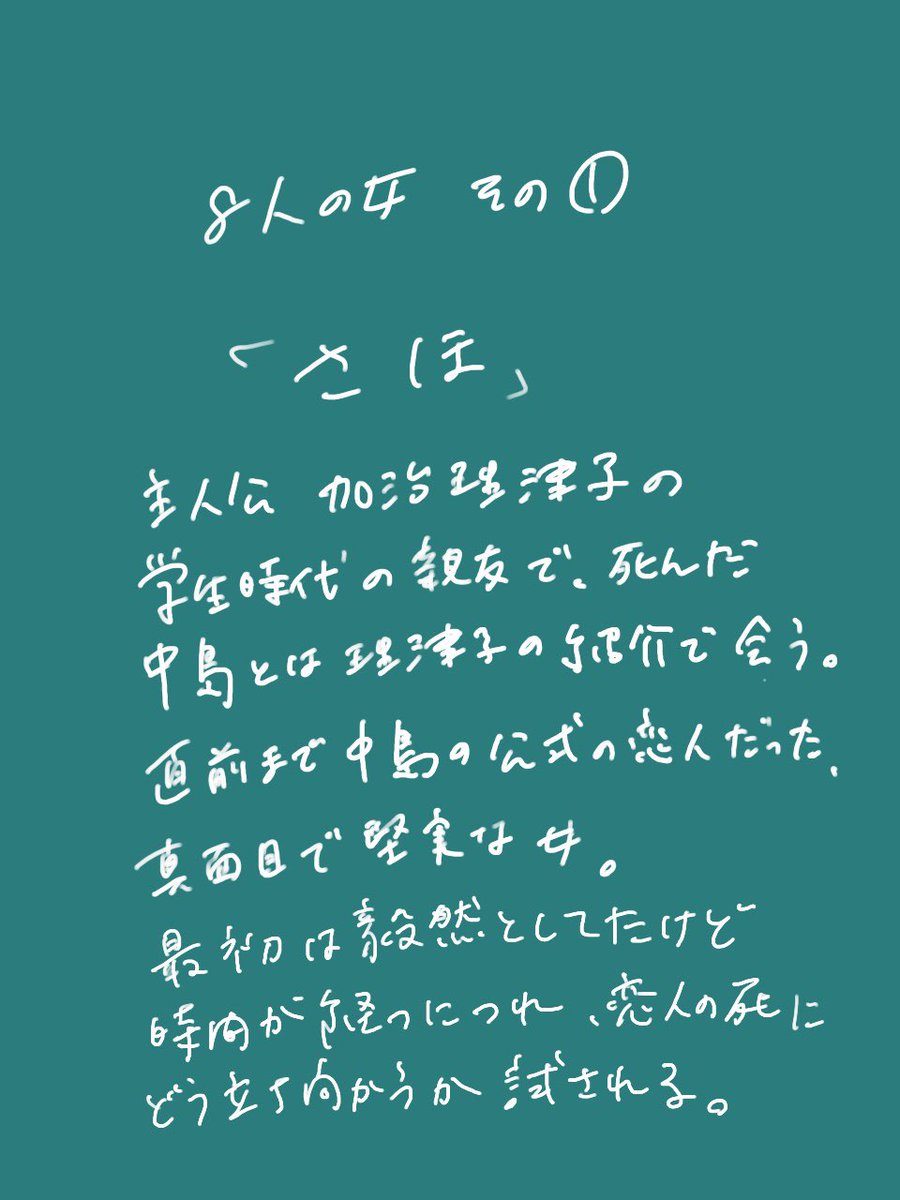 8人の女 その①
「さほ」
主人公 加治理津子の
学生時代の親友で、死んだ
中島とは理津子の紹介で会う。
直前まで中島の公式の恋人だった、
真面目で堅実な女。
最初は毅然としてたけど
時間が経つにつれ、恋人の死に
どう立ち向かうか試される。